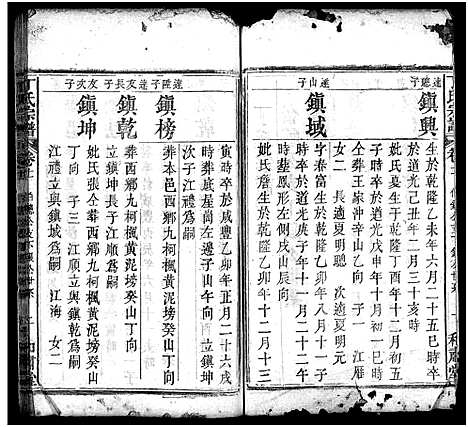 達聰子
鎮興
生於乾隆乙未年六月二十五巳時卒
於道光己丑年二月二十三亥時
妣氏夏生于乾隆丁酉年十二月三亥
時卒於道光戊戌年十月
仝葬泉沖辛山乙向 子一 江曆
女二 長適夏明元 次適夏明現
達山子
鎮域
字春富生於乾隆乙卯年八月十一子
時卒於道光庚子年十月十八
時葬鳳形左側戌山辰向
妣氏詹生於乾隆乙卯年十二月十三
寅時卒於咸豐乙卯年正月二十六戌
時葬底屋崗左邊子山午向
江禮立與鎮坤為嗣
達陞子
鎮榜
葬本邑西鄉九柯楓黃泥塝癸山丁向
立鎮坤長子江順為嗣
友長子
鎮乾
葬西鄉九柯楓黃泥塝癸山丁向
友次子
鎮坤
妣氏張仝葬西鄉九柯楓黃泥塝癸山
丁向 子三 江順立與鎮乾為嗣
江禮立與鎮域為嗣 江海 女二
丁氏宗譜